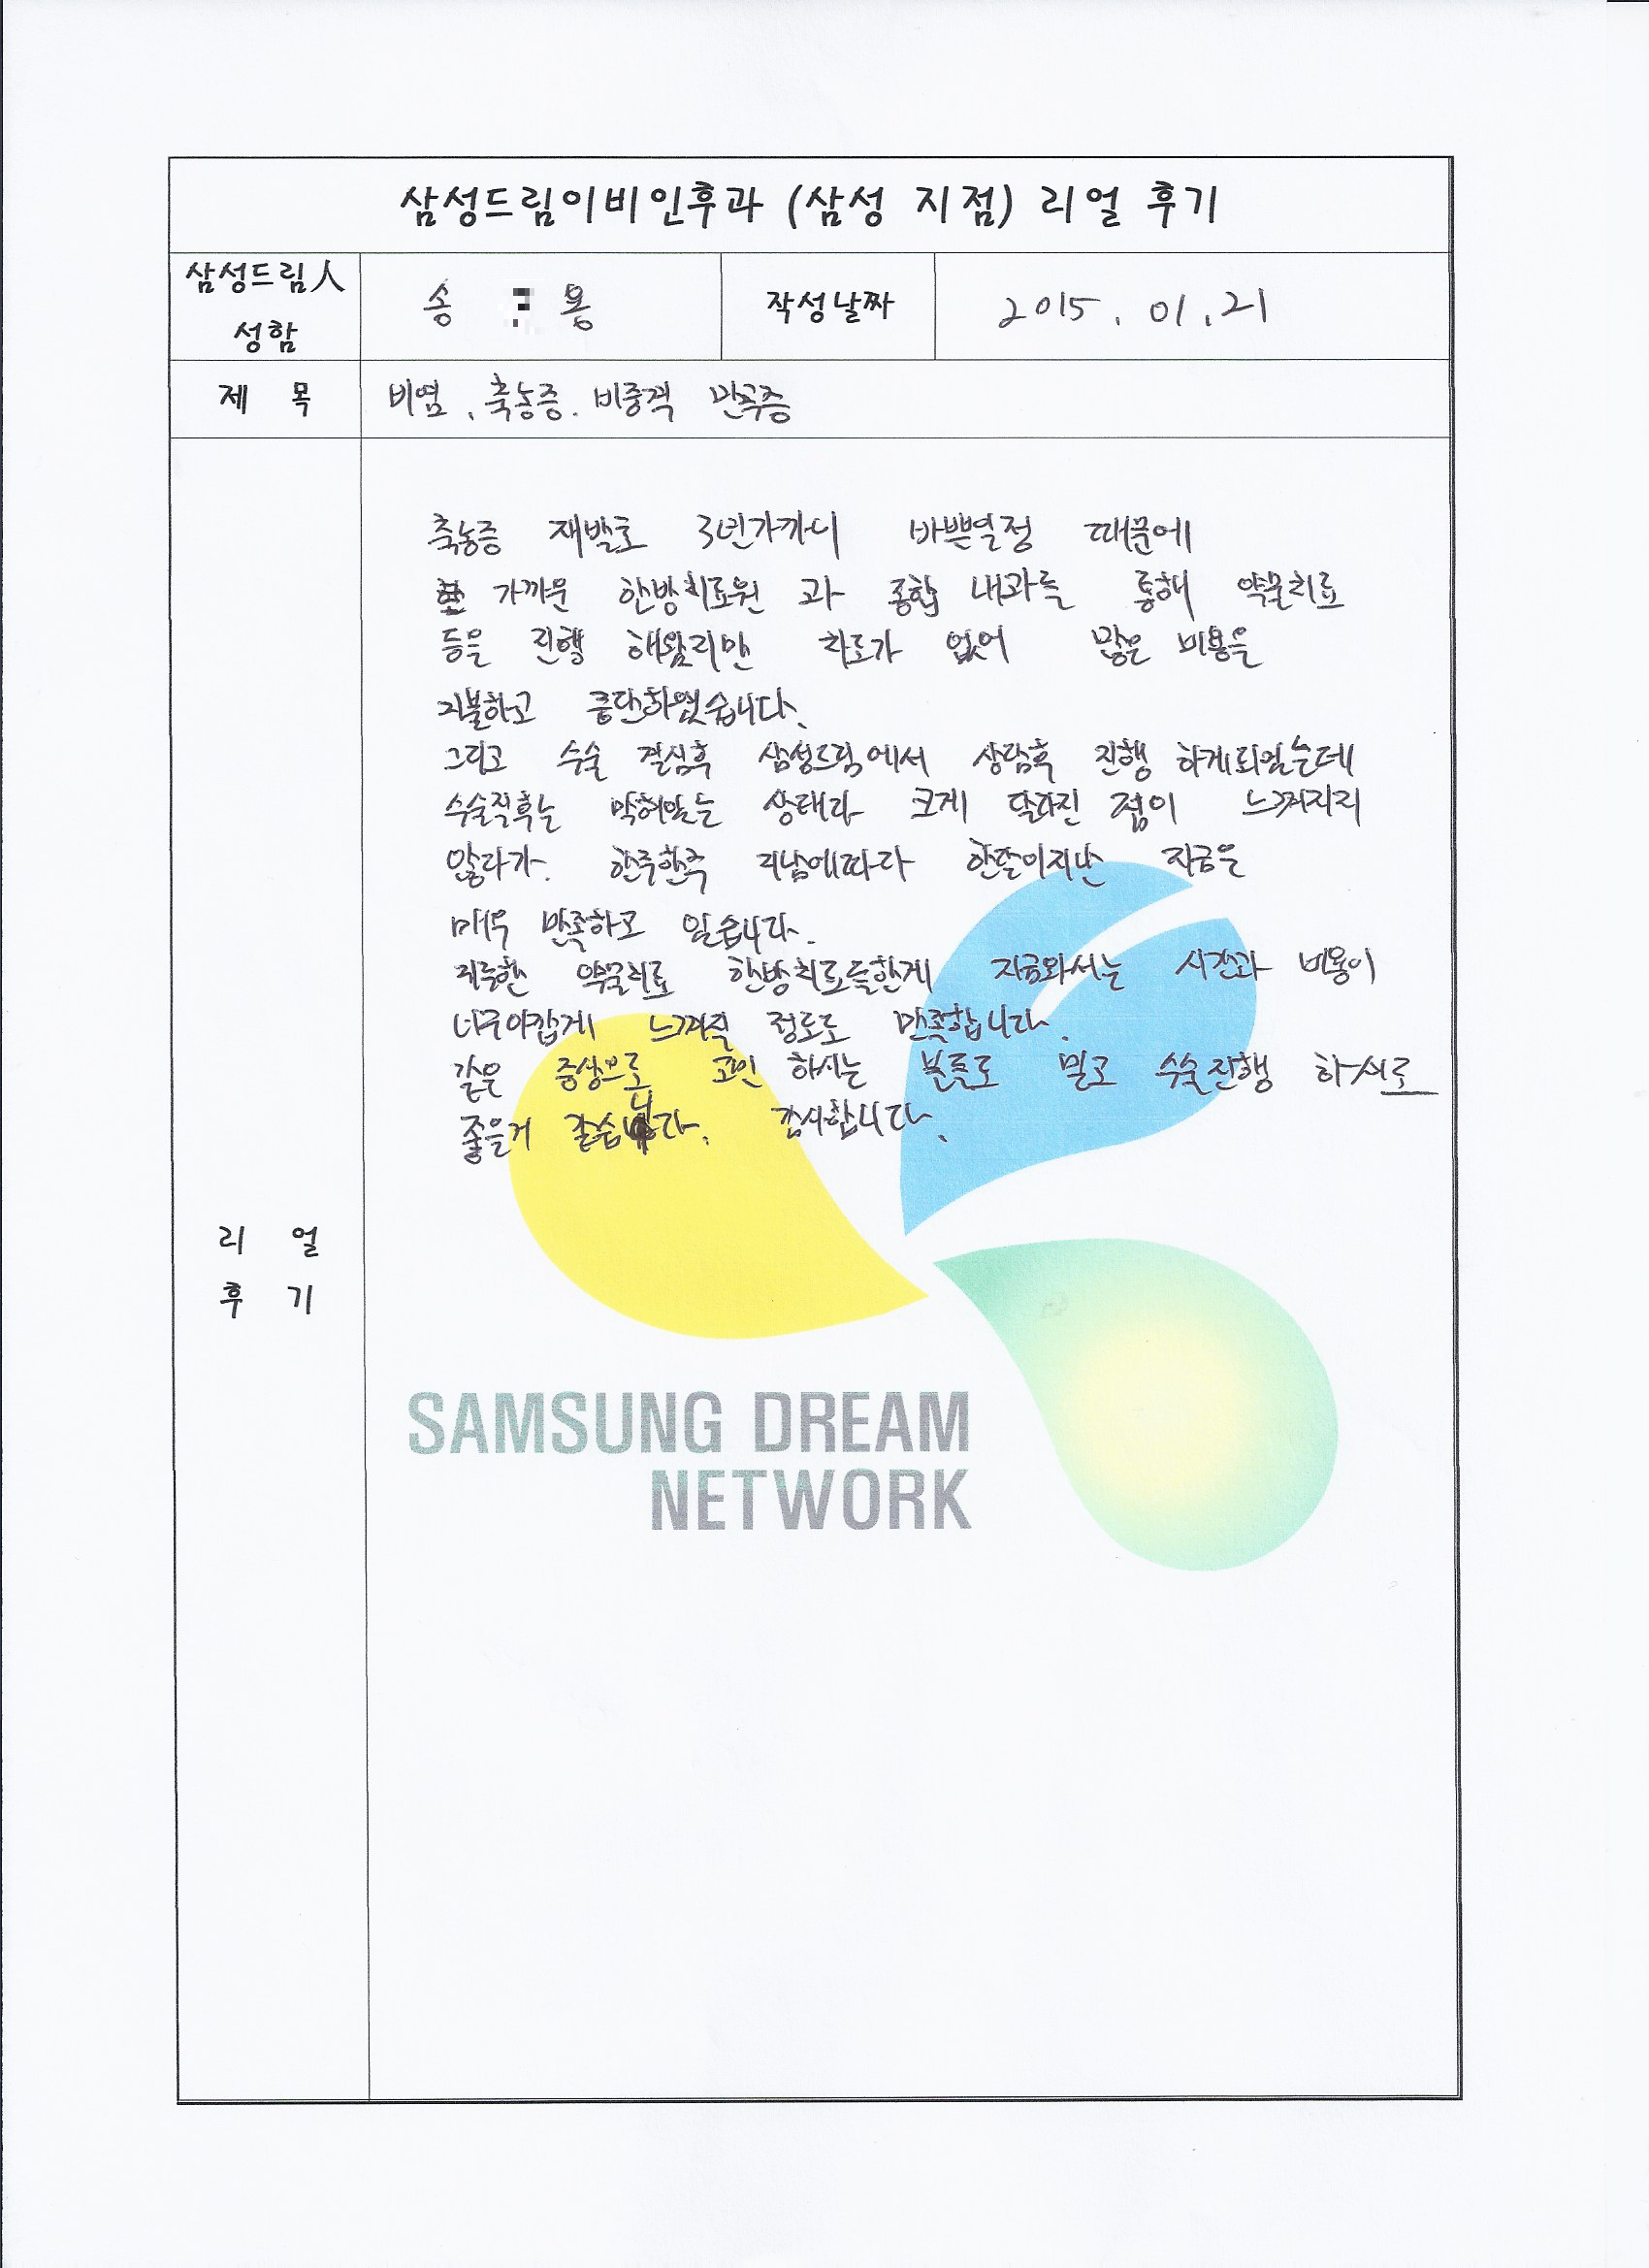 삼성드림이비인후과 (삼성 지점) 리얼 후기
삼성드림人
성함
송 용
작성날짜
2015. 01. 21
제 목
비염. 축농증. 비중격 만곡증
축농증 재발로 3년가까니 바쁜일정 때문에
가까운 한방치료원 과 종합 내과를 통해 약물치료
등을 진행 해왔지만 차도가 없어 많은 비용을
지불하고 중단하였습니다.
그리고 수술 결심후 삼성드림에서 상담후 진행 하게되었는데
수술직후는 막혀있는 상태라 크게 달라진 점이 느껴지지
않다가. 한주한주 지남에따라 한달이지난 지금은
매우 만족하고 있습니다.
지루한 약물치료 한방치료들한게 지금와서는 시간과 비용이
너무아깝게 느껴질 정도로 만족합니다.
같은 증상으로 고민 하시는 분들도 믿고 수술진행 하셔도
좋을거 같습니다. 감사합니다.
리 얼
후 기
SAMSUNG DREAM
NETWORK